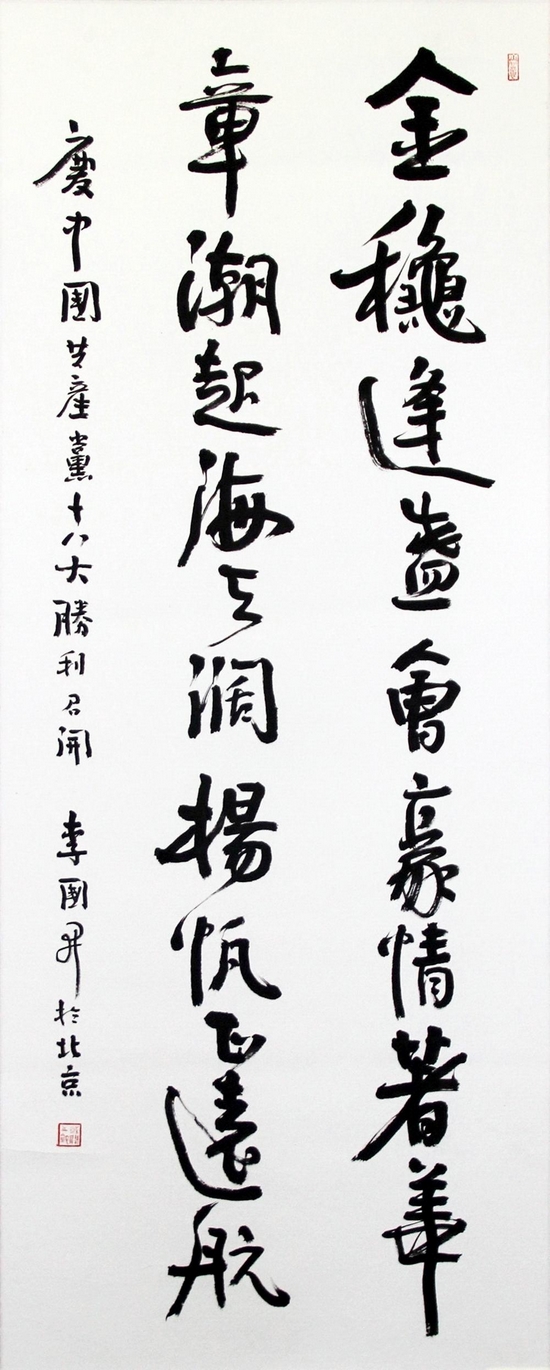 金穐逢盛會豪情著華
章潮起海天濶揚帆正遠航
慶中國共產黨十八大勝利召開 李國昇於北京